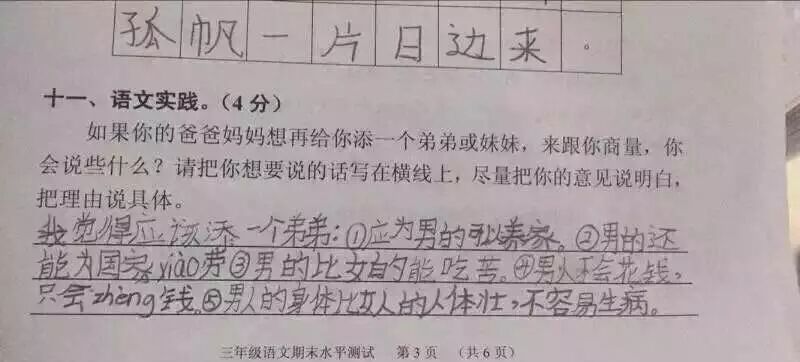 孤帆一片日边来。
十一、语文实践。(4分)
如果你的爸爸妈妈想再给你添一个弟弟或妹妹，来跟你商量，你
会说些什么？请把你想要说的话写在横线上，尽量把你的意见说明白，
把理由说具体。
我觉得应该添一个弟弟:①应为男的可以养家。②男的还
能为国家xiào劳③男的比女的能吃苦。④男人不会花钱，
只会zhèng钱。⑤男人的身体比女人的人体壮，不容易生病。
三年级语文期末水平测试 第3页 (共6页)